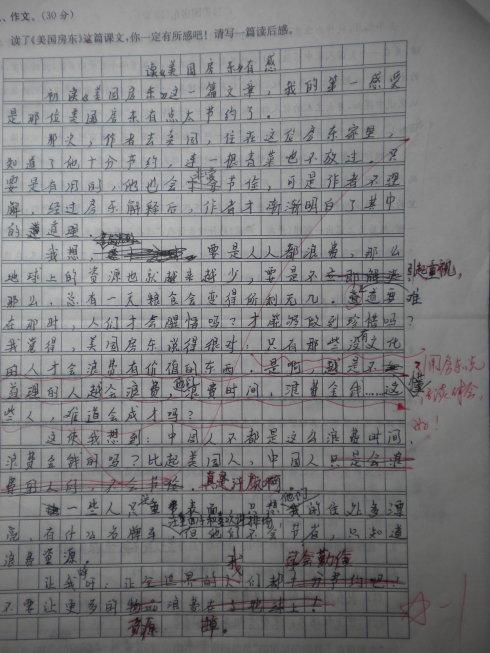 、作文。(30分)
读了《美国房东》这篇课文,你一定有所感吧!请写一篇读后感。
读《美国房东》有感
初读《美国房东》这一篇文章,我的第一感受
是那位美国房东有点太节约了。
那次,作者去美国,住在这位房东家里,
知道了他十分节约,连一根青菜也不放过。只
要是有用的,他也会非常节俭,可是作者不理
解,经过房东解释后,作者才渐渐明白了其中
的道理。
我想,要是人人都浪费,那么
地球上的资源也就越来越少,要是不引起重视,
那么,总有一天粮食会变得所剩无几。难道要
在那时,人们才会醒悟吗?才能够做到珍惜吗?
我觉得,美国房东说得很对,只有那些没文化
的人才会浪费有价值的东西。是啊,越是不懂
道理的人越会浪费,浪费时间,浪费金钱……这
些人,难道会成才吗?
用房东的
谈体会,
好!
这使我想到:中国人不都是这么浪费时间,
浪费金钱的吗?比起美国人,中国人只是会浪
费
真是汗颜啊
一些人只
的住处多漂
亮,有什么名牌车,但他们不会节省,只知道
浪费资源。
让我
让全世界的人们都十分节约吧!
我 学会勤俭
不要让更多的物品浪费在地球上!
资源 掉。